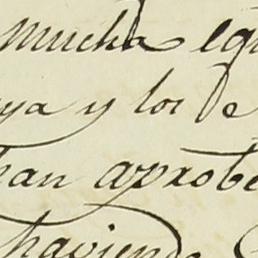 mucha
y los de
han aprobe
haviendo